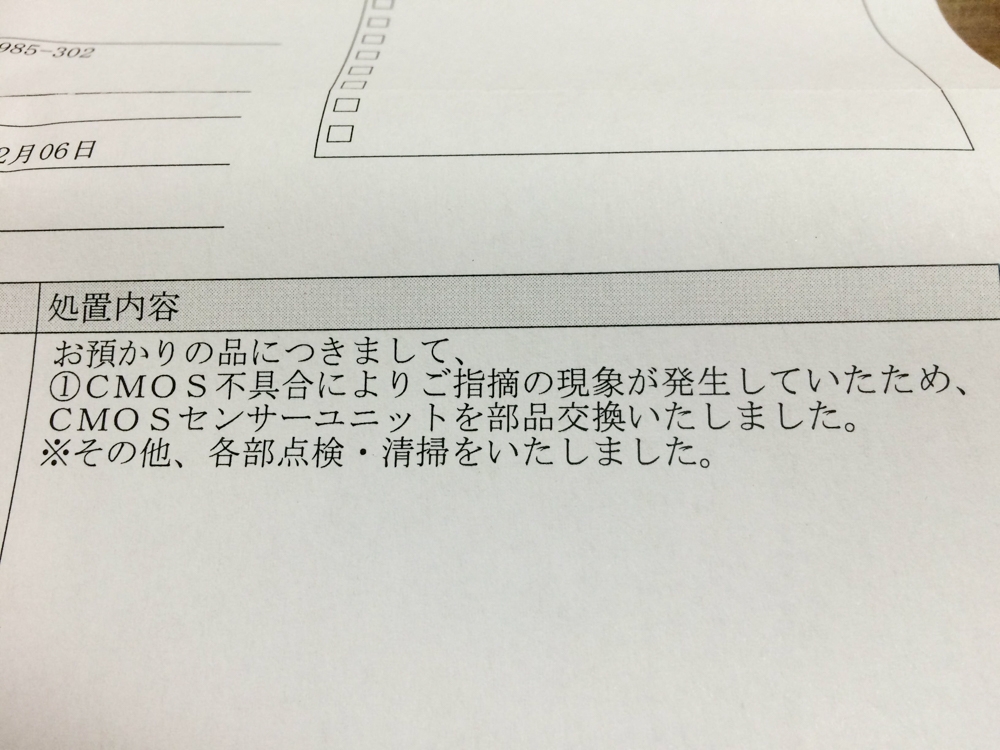 985-302
2月06日
処置内容
お預かりの品につきまして、
①ＣＭＯＳ不具合によりご指摘の現象が発生していたため、
ＣＭＯＳセンサーユニットを部品交換いたしました。
※その他、各部点検・清掃をいたしました。